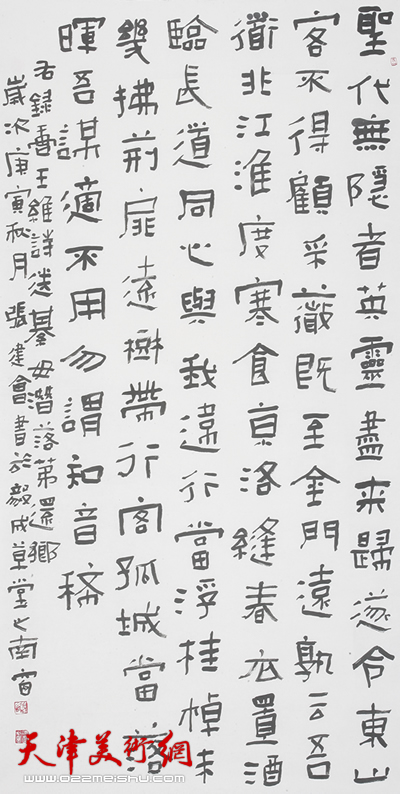 聖代無隱者英靈盡来歸遂令東山
客不得顧采薇既至金門遠孰云吾
衟非江淮度寒食京洛縫春衣置酒
臨長道同心與我違行當浮桂棹未
幾拂荊扉遠樹帶行客孤城當落
暉吾謀適不用勿謂知音稀
右録唐王維詩送綦毋潛落第還鄉
歲次庚寅秋月張建會書於毅成草堂之南窗
天津美術網
www.022meishu.com